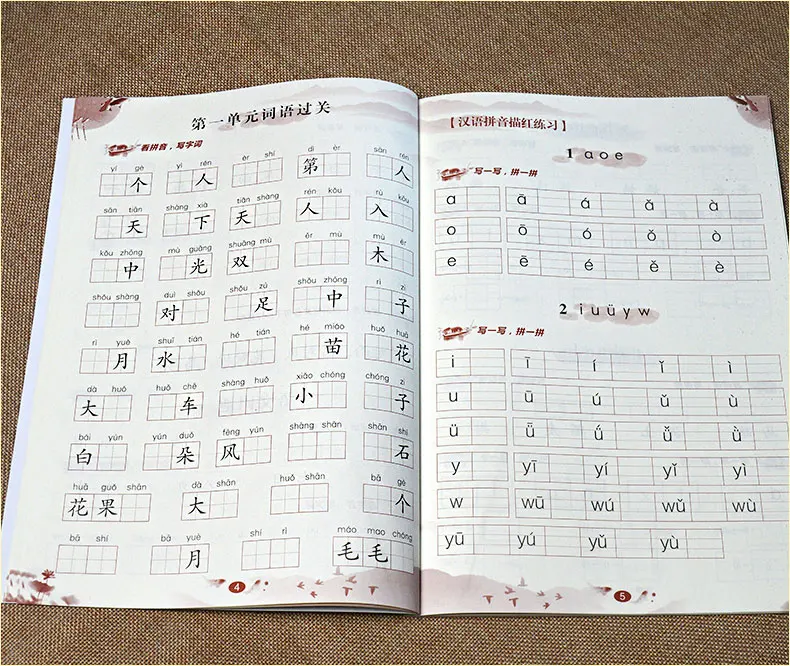 第一单元词语过关
看拼音，写字词
yí gè yì rén èr shí dì èr sān rén
个 人 第 人
sān tiān shàng xià tiān shàng rén kǒu rù kǒu
天 下 天 人 入
kǒu zhōng mù guāng shuāng mù ěr mù mù ěr
中 光 双 木
shǒu shàng duì shǒu shǒu zú shǒu zhōng rì zi
对 足 中 子
rì yuè shuǐ tián hé tián hé miáo huǒ huā
月 水 苗 花
dà huǒ huǒ chē shàng huǒ xiǎo chóng chóng zi
大 车 小 子
bái yún yún duǒ fēng yún shàng shān shān shí
白 朵 风 石
huā guǒ shān dà shān huǒ shān bā gè
花 果 大 个
bā shí bā yuè shí rì máo mao chóng
月 毛 毛
4
【汉语拼音描红练习】
1 a o e
写一写，拼一拼
a ā á ǎ à
o ō ó ǒ ò
e ē é ě è
2 i u ü y w
写一写，拼一拼
i ī í ǐ ì
u ū ú ǔ ù
ü ǖ ǘ ǚ ǜ
y yī yí yǐ yì
w wū wú wǔ wù
yū yú yǔ yù
5